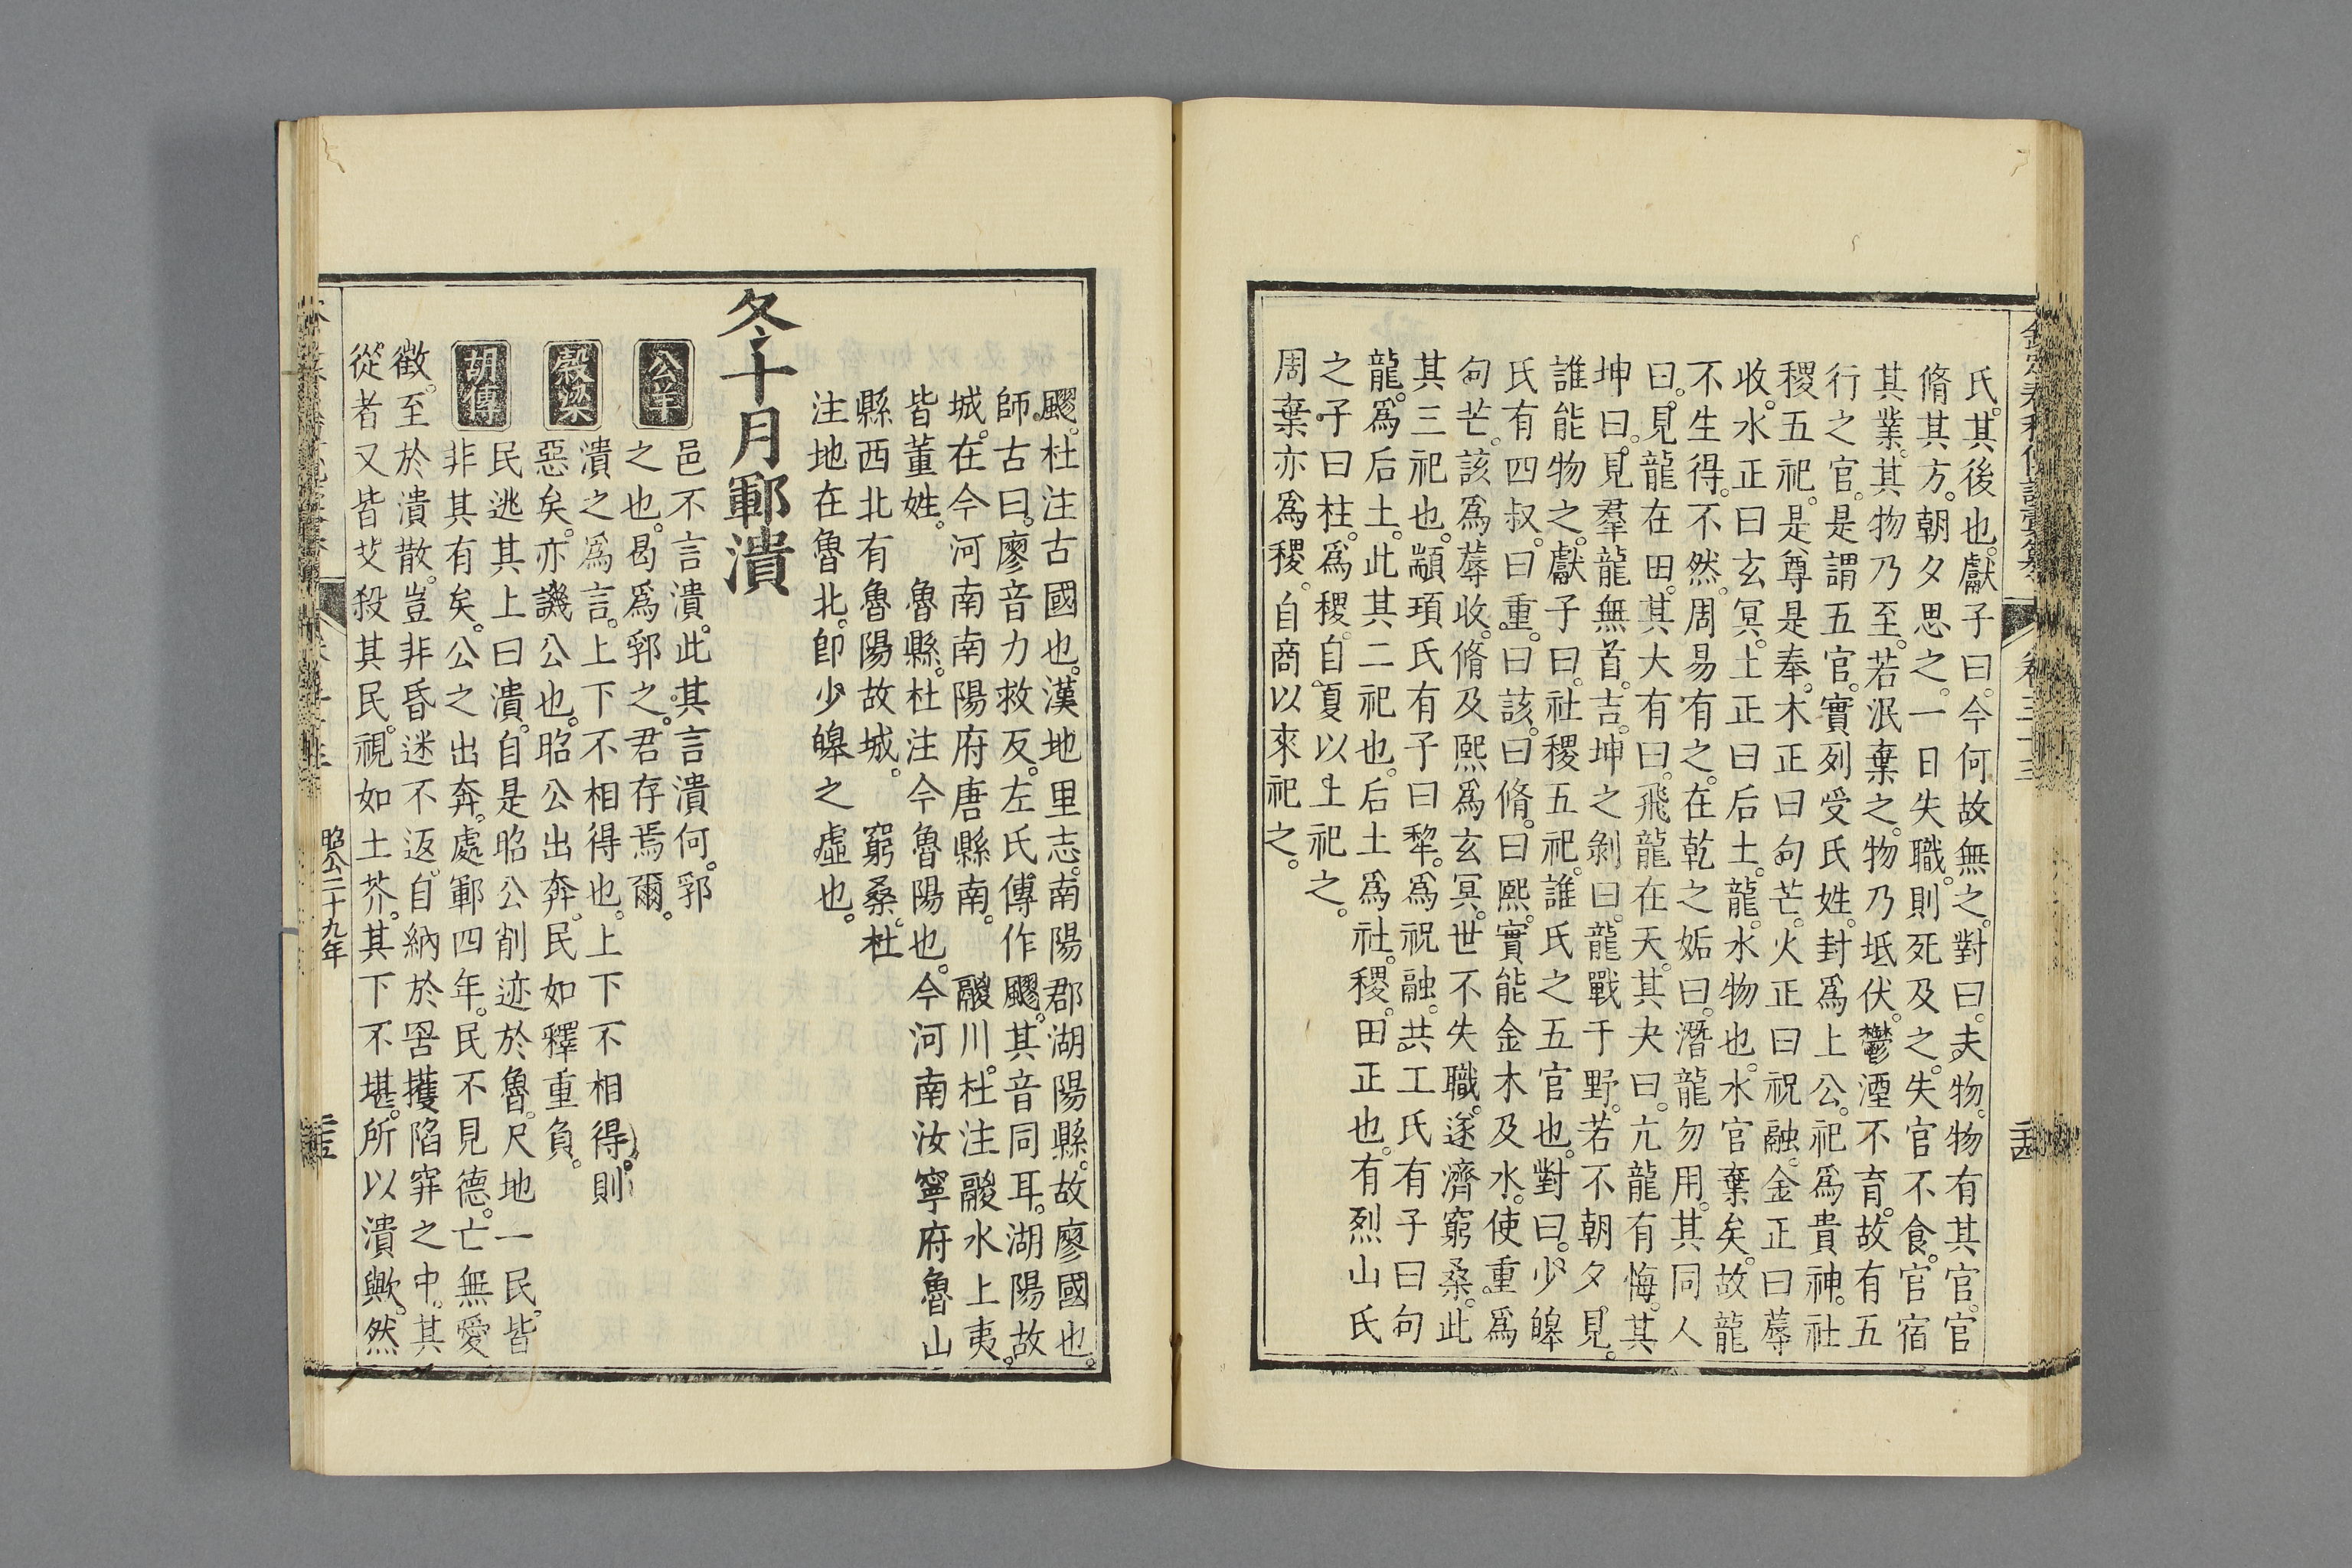 氏。其後也。獻子曰。今何故無之。對曰。夫物。物有其官。官
脩其方。朝夕思之。一日失職。則死及之。失官不食。官宿
其業。其物乃至。若泯棄之。物乃坻伏。鬱湮不育。故有五
行之官。是謂五官。實列受氏姓。封爲上公。祀爲貴神。社
稷五祀。是尊是奉。木正曰句芒。火正曰祝融。金正曰蓐
收。水正曰玄冥。土正曰后土。龍。水物也。水官棄矣。故龍
不生得。不然。周易有之。在乾之姤曰。潛龍勿用。其同人
曰。見龍在田。其大有曰。飛龍在天。其夬曰。亢龍有悔。其
坤曰。見羣龍無首。吉。坤之剝曰。龍戰于野。若不朝夕見。
誰能物之。獻子曰。社稷五祀。誰氏之五官也。對曰。少皥
氏有四叔。曰重。曰該。曰脩。曰熙。實能金木及水。使重爲
句芒。該爲蓐收。脩及熙爲玄冥。世不失職。遂濟窮桑。此
其三祀也。顓頊氏有子曰犂。爲祝融。共工氏有子曰句
龍。爲后土。此其二祀也。后土爲社。稷。田正也。有烈山氏
之子曰柱。爲稷。自夏以上祀之。
周棄亦爲稷。自商以來祀之。
飂。杜注古國也。漢地里志。南陽郡湖陽縣。故廖國也。
師古曰。廖音力救反。左氏傳作飂。其音同耳。湖陽故
城。在今河南南陽府唐縣南。 鬷川。杜注鬷水上夷。
皆董姓。 魯縣。杜注今魯陽也。今河南汝寧府魯山
縣西北有魯陽故城。 窮桑。杜
注地在魯北。卽少皥之虛也。
冬十月鄆潰
公羊 邑不言潰。此其言潰何。郛
之也。曷爲郛之。君存焉爾。
穀梁 潰之爲言。上下不相得也。上下不相得。則
惡矣。亦譏公也。昭公出奔。民如釋重負。
胡傳 民逃其上曰潰。自是昭公削迹於魯。尺地一民。皆
非其有矣。公之出奔。處鄆四年。民不見德。亡無愛
徵。至於潰散。豈非昏迷不返。自納於罟擭陷穽之中。其
從者又皆艾殺其民。視如土芥。其下不堪。所以潰歟。然
昭公二十九年